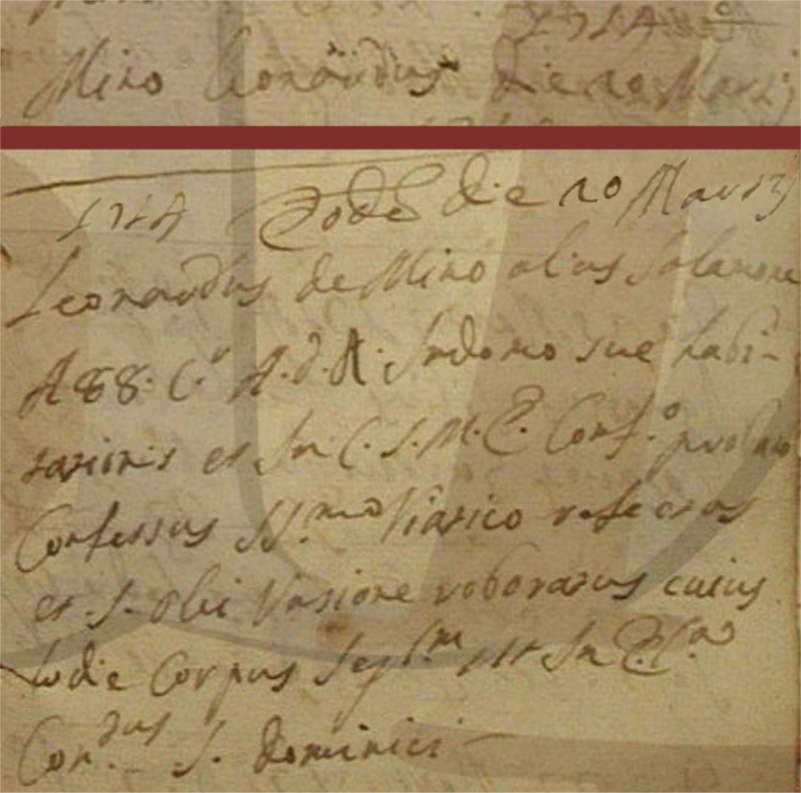 1714
Miro Leonardus die 20 Martij
1714 Eodē die 20 Martij
Leonardus de Miro alias Salamone
A 88. C.r A.D.R. In domo sue habi-
tationis et In C.S.M.E. Conf.o
Confessus SS.mo Viatico refectus
et S. Olei Untione roboratus cuius
hodie Corpus Sep.m est In
S. Dominici